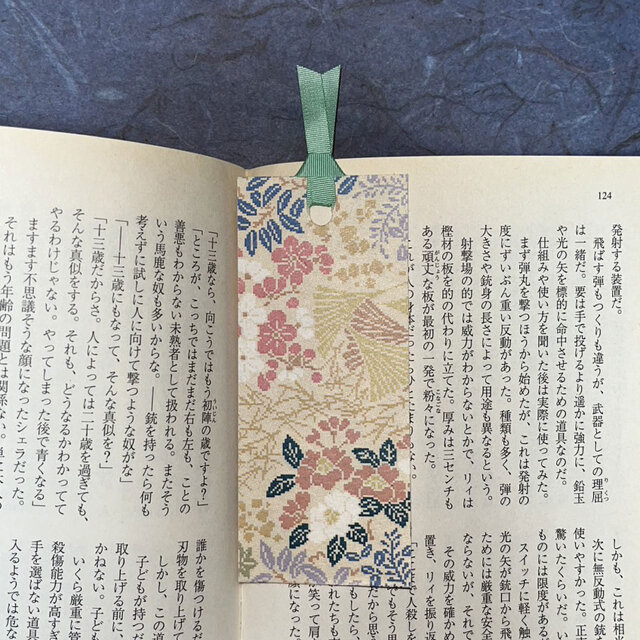 124
発射する装置だ。
飛ばす弾もつくりも違うが、武器としての理屈
は一緒だ。要は手で投げるより遥かに強力に、鉛玉
や光の矢を標的に命中させるための道具なのだ。
仕組みや使い方を聞いた後は実際に使ってみた。
まず弾丸を撃つほうから始めたが、これは発射の
度にずいぶん重い反動があった。種類も多く、弾の
大きさや銃身の長さによって用途も異なるという。
射撃場の的では威力がわからないとかで、リィは
樫材の板を的の代わりに立てた。厚みは三センチも
ある頑丈な板が最初の一発で粉々になった。
しかも、これは相
次に無反動式の銃
使いやすかった。正
驚いたくらいだ。
ものには限度がある
スイッチに軽く触
光の矢が銃口から飛
ためには厳重な安全
ならないが、それで
その威力を確かめ
置き、リィを振り返
「十三歳なら、向こうではもう初陣の歳ですよ？」
「ところが、こっちではまだまだ右も左も、ことの
善悪もわからない未熟者として扱われる。またそう
いう馬鹿な奴も多いからな。――銃を持ったら何も
考えずに試しに人に向けて撃つような奴がな」
「――十三歳にもなって、そんな真似を？」
「十三歳だからさ。人によっては二十歳を過ぎても、
そんな真似をする。それも、どうなるかわかってて
やるわけじゃない。やってしまった後で青くなる」
ますます不思議そうな顔になったシェラだった。
それはもう年齢の問題とは関係ない。
誰かを傷つける
刃物を取り上げ
しかし、この
子どもが持つ
取り上げる前に、
かねない。子ど
いくら厳重に管
殺傷能力が高すぎ
手を選ばない道
入るようでは危